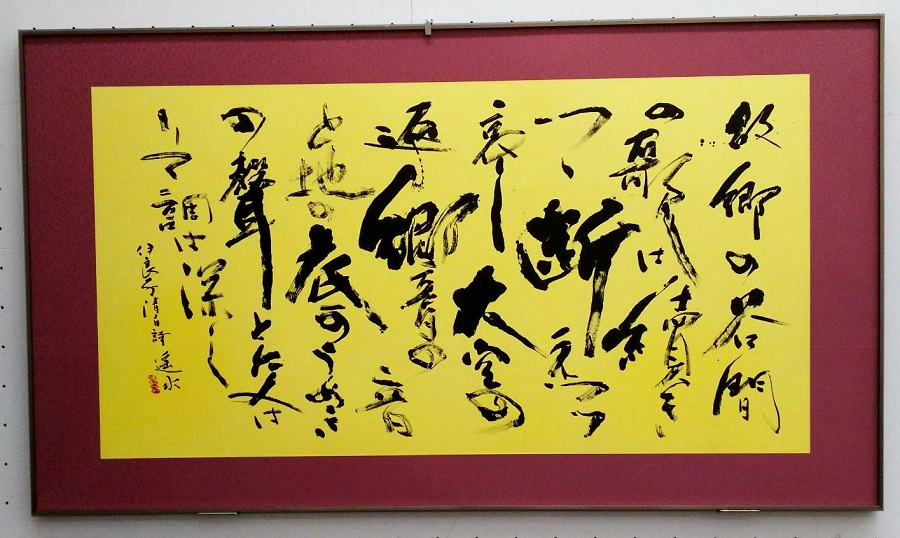 故郷の谷間
の歌は續き
つゝ断えつゝ
哀し大空の
返響の音
と地の底のうめき
の聲と交は
りて調は深し
伊良子清白詩 遙水